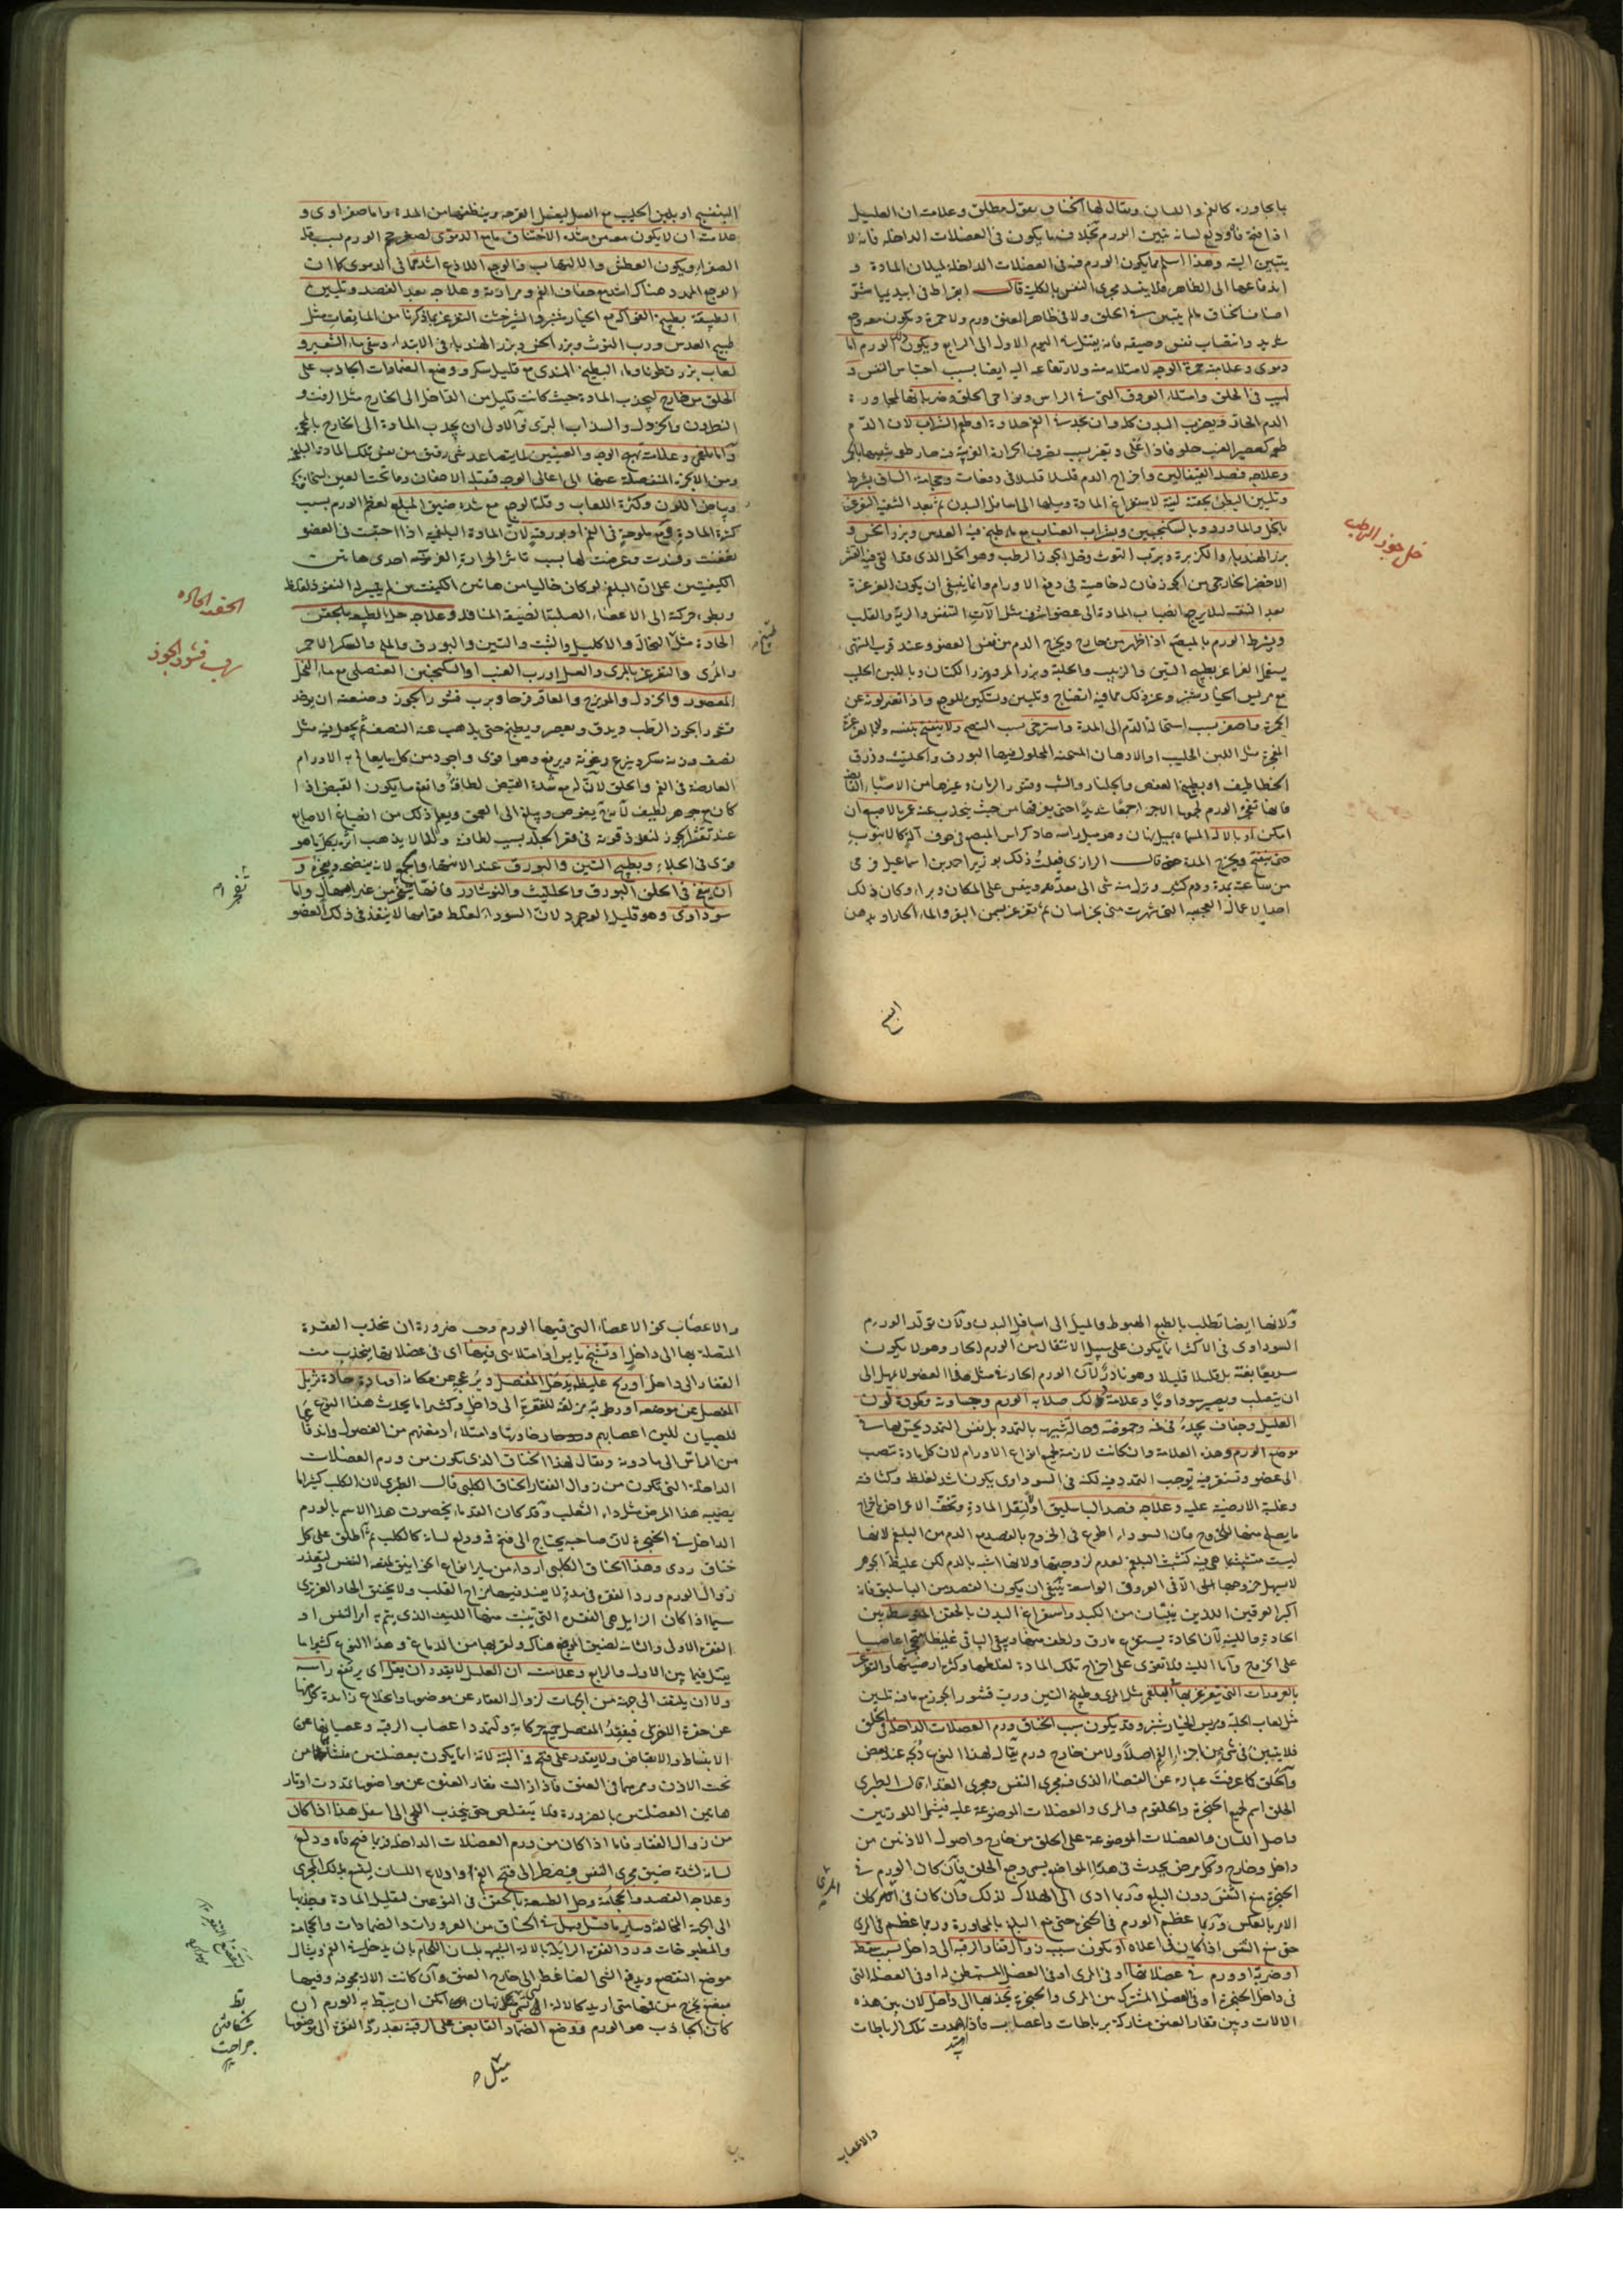 بالمجاورة كالفم واللسان ويقال لها الخناق بقول مطلق وعلامته ان العليل
اذا فتح فاه ودلع لسانه تبين الورم بخلاف ما يكون في العضلات الداخلة فانه لا
يتبين البتة وهذا اسلم مما يكون الورم فيه في العضلات الداخلة لميلان المادة و
اندفاعها الى الظاهر فلا يفسد مجرى النفس بالكلية قال ابقراط في ابيذيميا شر
اصناف الخناق ما لم يتبين في الحلق ولا في ظاهر العنق ورم ولا حمرة ويكون معه وجع
شديد وانتصاب نفس وضيقه فانه يقتل في اليوم الاول الى الرابع ويكون ذلك الورم اما
دموي وعلامته حمرة الوجه لامتلائه منه ولارتفاعه اليه ايضا بسبب احتباس النفس و
لهيب في الحلق وامتلاء العروق التي في الراس ونواحي الحلق وضربانها لمجاورة
الدم الحار وضربت البدن كله وان يجد في الفم حلاوة او طعم الشراب لان الدم
طعمه كعصير العنب حلو فاذا غلى وتغير بسبب تصرف الحرارة الغريبة فيه صار طعمه شبيها بالخمر
وعلاجه فصد القيفالين واخراج الدم قليلا قليلا في دفعات وحجامة الساق بشرط
وتليين البطن بحقنة لينة لاستفراغ المادة وميلها الى اسافل البدن ثم بعد التنقية التغرغر
بالخل والماورد وبالسكنجبين وبشراب العناب مع ماء طبخ فيه العدس وبزر الخس و
بزر الهندباء والكزبرة وبرب التوث وخل الجوز الرطب وهو الخل الذي فيه القشر
الاخضر الخارجي من الجوز فان له خاصية في دفع الاورام وانما ينبغي ان يكون الغرغرة
بعد التنقية لئلا يرجع انصباب المادة الى عضو اشرف مثل آلات التنفس والرية والقلب
ويشرط الورم بالمبضع اذا ظهر من خارج ويخرج الدم من نفس العضو وعند قرب المنتهى
يستعمل الغراغر بطبيخ التين والزبيب والحلبة وبزر المرو وبزر الكتان وباللبن الحليب
مع مريس الخيار شنبر وغير ذلك مما فيه انضاج وتليين وتسكين للوجع واذا تغير لونه عن
الحمرة واصفر بسبب استحالة الدم الى المدة واسترخى بسبب النضج ولا ينفتح بنفسه
المفجرة مثل اللبن الحليب او الادهان المسخنة المحلول فيها البورق والحلتيت وذرق
الخطاطيف او بطبيخ العفص والجلنار والشب وقشور الرمان وغيرها من الاشياء القابضة
فانها تفجر الورم لجمعها الاجزاء جمعا شديدا حتى يفرقها من حيث ينجذب عنه غمز بالاصبع ان
امكن او بالالة المسماة بميل نهان وهو ميل راسه حاد كراس المبضع في جوف آلة كالانبوب
حتى ينفتح ويخرج المدة قال الرازي فعلت ذلك بوزير احمد بن اسماعيل ورمى
من ساعته مدة ودم كثير ونزل منه شيء الى معدته وتنفس على المكان وبرا وكان ذلك
احد الاعمال العجيبة التي شهرت مني بخراسان ثم يتغرغر بسمن البقر والماء الحار او بدهن
خل جوز الرطب
البنفسج
البنفسج او بلبن الحليب مع العسل ليغسل القرحة وينظفها من المدة واما صفراوي و
علامته ان لا يكون معه من شدة الاختناق ما مع الدموي لصغر حجم الورم بسبب قلة
الصفراء ويكون العطش والالتهاب والوجع اللاذع اشد مما في الدموي كما ان
الوجع الممدد هناك اشد مع جفاف الفم ومرارته وعلاجه بعد الفصد وتليين
الطبيعة بطبيخ الفواكه مع الخيار شنبر والشيرخشت التغرغر بما ذكرنا من المائعات مثل
طبيخ العدس ورب التوث وبزر الخس وبزر الهندباء في الابتداء وسقي ماء الشعير و
لعاب بزر قطونا وماء البطيخ الهندي مع قليل سكر ووضع الضمادات الجاذب على
الحلق من خارج ليجذب المادة حيث كانت قليلا من الداخل الى الخارج مثل الزفت و
النطرون والخردل والسذاب البري والاولى ان يجذب المادة الى الخارج بالمحجمة
واما بلغمي وعلامته تهيج الوجه والعينين لما يتصاعد شيء رقيق من نفس تلك المادة البلغمية
ومن الابخرة المنفصلة عنها الى اعالي الوجه فتمتلئ الاجفان وما تحت العين لسخافتها
وبياض اللون وكثرة اللعاب وقلة الوجع مع شدة ضيق المبلع لعظم الورم بسبب
كثرة المادة وقد يكون ملوحة في الفم او بورقية لان المادة البلغمية اذا احتبست في العضو
تعفنت وفسدت وعرضت لها بسبب تاثير الحرارة الغريبة احدى هاتين
الكيفيتين على ان البلغم لو كان خاليا من هاتين الكيفيتين لم يتيسر له النفوذ لغلظه
وبطؤ حركته الى الاعضاء الصلبة الضيقة المنافذ وعلاجه حل الطبيعة بالحقن
الحادة مثل النخالة والاكليل والشبت والتين والبورق والملح والسكر الاحمر
والمري والتغرغر بالمري والعسل او رب العنب او السكنجبين العنصلي مع ماء الفجل
المعصور والخردل والمويزج والعاقرقرحا وبرب قشور الجوز وصنعته ان يؤخذ
قشور الجوز الرطب ويدق ويعصر ويطبخ حتى يذهب عنه النصف ثم يجعل فيه مثل
نصف وزنه سكر وينزع رغوته ويرفع وهو اقوى واجود من كل ما يعالج به الاورام
العارضة في الفم والحلق لان له مع شدة القبض لطافة وانفع ما يكون القبض اذا
كان مع جوهر لطيف لانه يغوص ويبلغ الى العمق ويعلم ذلك من انصباغ الاصابع
عند تقشير الجوز لنفوذ قوته في قعر الجلد بسبب لطافته ولهذا لا يذهب اثره بكل ما هو
قوي في الجلاء وبطبيخ التين والبورق عند الانتهاء والجمع لانه ينضجه ويفجره و
ان ينفخ في الحلق البورق والحلتيت والنوشادر فانها تفجر من غير امهال واما
سوداوي وهو قليل الوجود لان السوداء لغلظ قوامها لا ينفذ في ذلك العضو
الحقنة الحادة
رب قشور الجوز
تفجره
ولانها ايضا تطلب بالطبع الهبوط والميل الى اسافل البدن ولان تولد الورم
السوداوي في الاكثر انما يكون على سبيل الانتقال من الورم الحار وهو لا يكون
سريعا بغتة بل قليلا قليلا وهو نادر لان الورم الحار في مثل هذا العضو لا يمهل الى
ان يتصلب ويصير سوداويا وعلامة ذلك صلابة الورم وجساوته وكمودة لون
العليل وجفاف يجده في فمه وحموضته وحالة شبيهة بالتمدد بل نفس التمدد يحس بها في
موضع الورم وهذه العلامة وان كانت لازمة لجميع انواع الاورام لان كل مادة تنصب
الى عضو وتستقر فيه توجب التمدد فيه لكنه في السوداوي يكون اشد لغلظه وكثافته
وغلبة الارضية عليه وعلاجه فصد الباسليق اولا لتقل المادة وتخف الاعراض باخراج
ما يصلح منها للخروج فان السوداء اطوع في الخروج بالفصد مع الدم من البلغم لانها
ليست متشبثة بما هي فيه كتشبث البلغم لعدم لزوجتها ولانها اشبه بالدم لكن غليظ الجوهر
لا يسهل خروجها الا في العروق الواسعة ينبغي ان يكون الفصد من الباسليق فانه
اكبر العرقين اللذين ينبتان من الكبد واستفراغ البدن بالحقن المتوسط بين
الحادة واللينة لان الحادة يستفرغ مارق ولطف منها ويبقى الباقي غليظا متحجرا عاصيا
على الخروج واما اللينة فلا تقوى على اخراج تلك المادة لغلظها وكثرة ارضيتها والتغرغر
بالغرورات التي يتغرغر بها البلغمي مثل المري وطبيخ التين ورب قشور الجوز مع ما فيه تليين
مثل لعاب الحلبة ومريس الخيار شنبر وقد يكون سبب الخناق ورم العضلات الداخلة في الحلق
فلا يتبين في شيء من اجزاء الفم اصلا ولا من خارج ورم يقال لهذا النوع ذبحة عند بعض
والحلق كما عرفت عبارة عن الفضاء الذي فيه مجرى النفس ومجرى الغذاء قال الطبري
الحلق اسم لجميع الحنجرة والحلقوم والمري والعضلات الموضوعة عليه فيشمل اللوزتين
واصل اللسان والعضلات الموضوعة على الحلق من خارج واصول الاذنين من
داخل وخارج وكل مرض يحدث في هذه المواضع يسمى وجع الحلق فان كان الورم في
الحنجرة منع التنفس دون البلع وربما ادى الى الهلاك لذلك وان كان في المري كان
الامر بالعكس وربما عظم الورم في الحنجرة حتى منع البلع بالمجاورة وربما عظم في المري
حتى منع التنفس اذا كان في اعلاه او يكون سببه زوال فقار الرقبة الى داخل بسبب سقطة
او ضربة او ورم في عضلاتها او في المري او في العضل المستبطن له او في العضلة التي
في داخل الحنجرة او في العضل المشترك من المري والحنجرة يجذبها الى داخل لان بين هذه
الالات وبين فقار العنق مشاركة برباطات واعصاب فاذا تمددت تلك الرباطات
المري
والاعصاب
والاعصاب نحو الاعضاء التي فيها الورم وجب ضرورة ان تجذب الفقرة
المتصلة بها الى داخل او تشنج يابس او امتلائي فيها اى في عضلاتها ينجذب منه
الفقار الى داخل او ريح غليظ يدخل المفصل ويزعجه عن مكانه او مادة حادة تزيل
المفصل عن موضعه او رطوبة مزلقة للفقرة الى داخل وكثيرا ما يحدث هذا النوع
للصبيان للين اعصابهم وامتلاء ادمغتهم من الفضول واندفاعها
من الراس الى ما دونه ويقال لهذا الخناق الذي يكون من ورم العضلات
الداخلة التي تكون من زوال الفقار الخناق الكلبي قال الطبري لان الكلب كثيرا ما
يصيبه هذا المرض مثل داء الثعلب وقد كان القدماء يخصون هذا الاسم بالورم
الداخل في الحنجرة لان صاحبه يحتاج الى فتح فمه ودلع لسانه كالكلب ثم اطلق على كل
خناق ردي وهذا الخناق الكلبي اردأ من سائر انواع الخوانيق لمنعه النفس ولتعذر
زوال الورم ورد الفقرة في مدة لا يفسد فيها مزاج القلب ولا يختنق الحار الغريزي
سيما اذا كان الزائل هي الفقرة التي ينبت منها الليف الذي يتم به امر النفس او
الفقرة الاولى والثانية لضيق الموضع هناك ولقربها من الدماغ وهذا النوع كثيرا ما
يقتل فيما بين الاول والرابع وعلامته ان العليل لا يقدر ان يقل اى يرفع راسه
ولا ان يلتفت الى جهة من الجهات لزوال الفقار عن موضعها وانخلاع زائدة كل منها
عن حفرة الاخرى فيفقد المفصل جميع حركاته ولتمدد اعصاب الرقبة وعصباتها عن
الانبساط والانقباض ولا يقدر على فتح فيه البتة لانه انما يكون بعضلتين منشأهما من
تحت الاذن وممرهما في العنق فاذا زالت فقار العنق عن مواضعها تمددت اوتار
هاتين العضلتين بالضرورة فلا يتقلص حتى ينجذب اللحى الى اسفل هذا اذا كان
من زوال الفقار فاما اذا كان من ورم العضلات الداخلة فربما فتح فاه ودلع
لسانه لشدة ضيق مجرى النفس فيضطر الى فتح الفم او ادلاع اللسان ليتسع بذلك المجرى
وعلاجه الفصد والحجامة وحل الطبيعة بالحقن في النوعين لتقليل المادة وجذبها
الى الجهة المخالفة وسائر ما قيل في الخناق من الغرورات والضمادات والحجامة
والمطبوخات ورد الفقرة الزائلة بالالة الشبيهة بلسان اللجام بان يدخل في الفم وينال
موضع التقصع ويدفع الشيء الضاغط الى خارج العنق وان كانت الالة مجوفة وفيها
مبضع يخرج من فمها متى اريد كالالة التي تسمى نهان امكن ان يبط به الورم ان
كان الجاذب هو الورم ووضع الضماد القابض على الرقبة بعد رد الفقرة الى موضعها
بط
شكافتن
جراحت
مثل